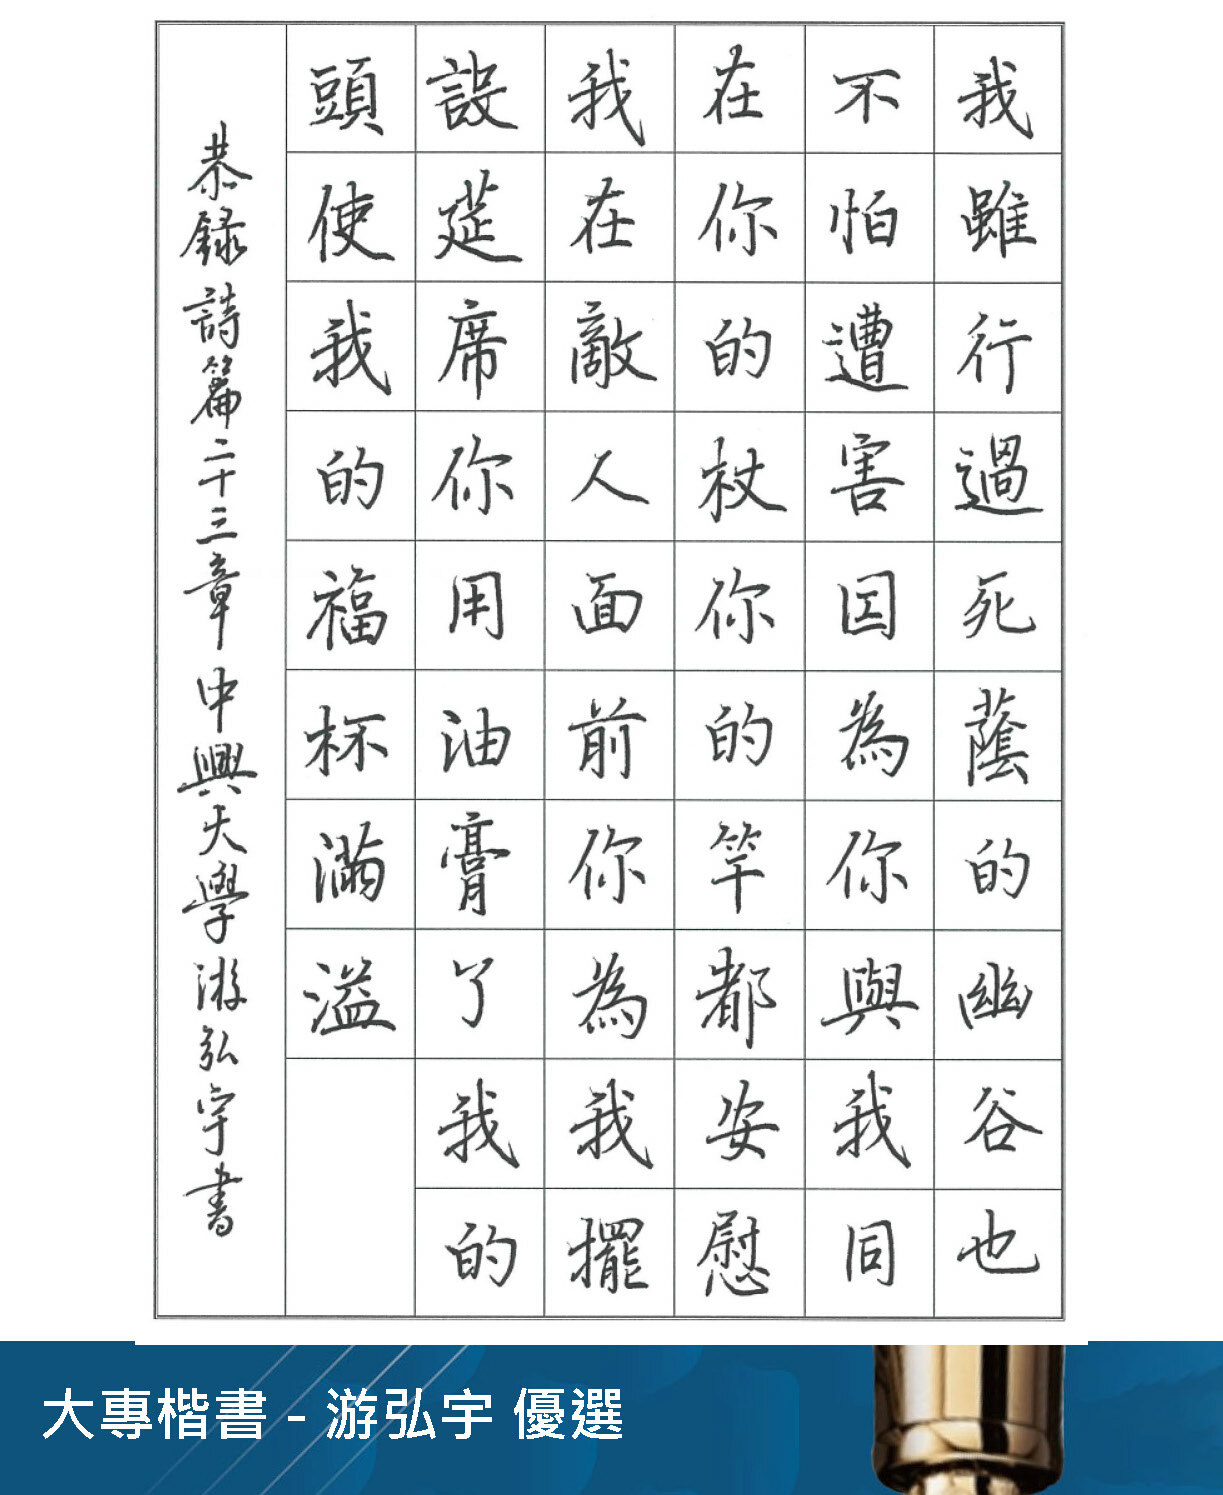 我雖行過死蔭的幽谷也
不怕遭害因為你與我同
在你的杖你的竿都安慰
我在敵人面前你為我擺
設筵席你用油膏了我的
頭使我的福杯滿溢
恭錄詩篇二十三章 中興大學 游弘宇書
大專楷書 - 游弘宇 優選